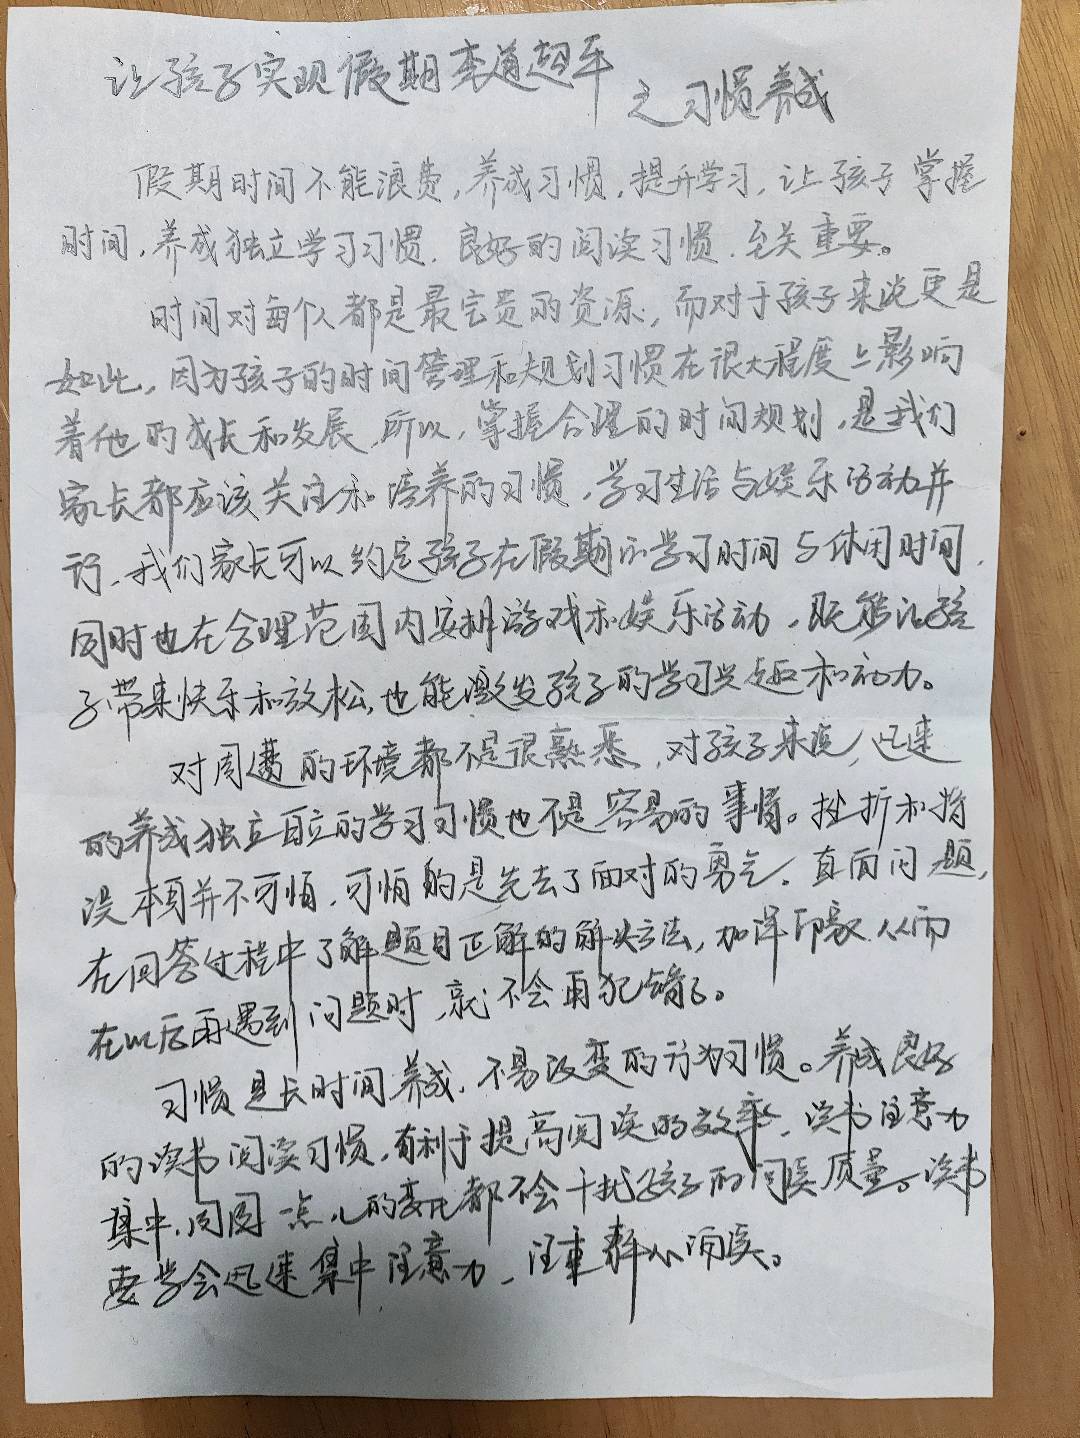 让孩子实现假期弯道超车
之习惯养成
假期时间不能浪费,养成习惯,提升学习,让孩子掌握
时间,养成独立学习习惯,良好的阅读习惯,至关重要。
时间对每个人都是最宝贵的资源,而对于孩子来说更是
如此,因为孩子的时间管理和规划习惯在很大程度上影响
着他的成长和发展,所以,掌握合理的时间规划,是我们
家长都应该关注和培养的习惯,学习生活与娱乐活动并
行,我们家长可以约定孩子在假期的学习时间与休闲时间,
同时也在合理范围内安排游戏和娱乐活动,既能让孩
子带来快乐和放松,也能激发孩子的学习兴趣和动力。
对周遭的环境都不是很熟悉,对孩子来说,迅速
的养成独立自立的学习习惯也不是容易的事情。挫折和
没本身并不可怕,可怕的是失去了面对的勇气。直面问题,
在回答过程中了解题目正解的解决方法,加深印象从而
在以后再遇到问题时,就不会再犯错了。
习惯是长时间养成,不易改变的行为习惯。养成良好
的读书阅读习惯,有利于提高阅读的效率,读书注意力
集中,周围一点儿的变化都不会干扰孩子的阅读质量。读书
要学会迅速集中注意力,注重静心阅读。